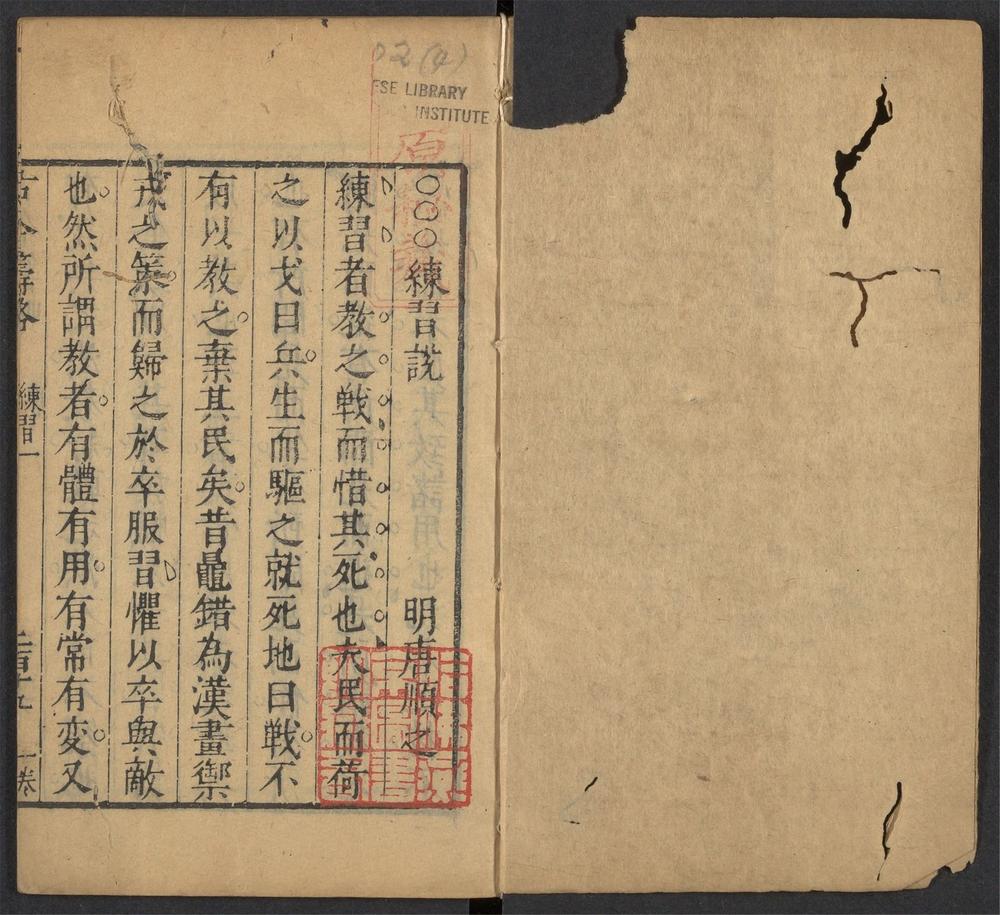 02(4)
ESE LIBRARY
INSTITUTE
○○○練習說 明唐順之
練習者教之戰而惜其死也夫民而荷
之以戈曰兵生而驅之就死地曰戰不
有以教之棄其民矣昔鼂錯為漢畫禦
戎之策而歸之於卒服習懼以卒與敵
也然所謂教者有體有用有常有変又
練習一
一卷